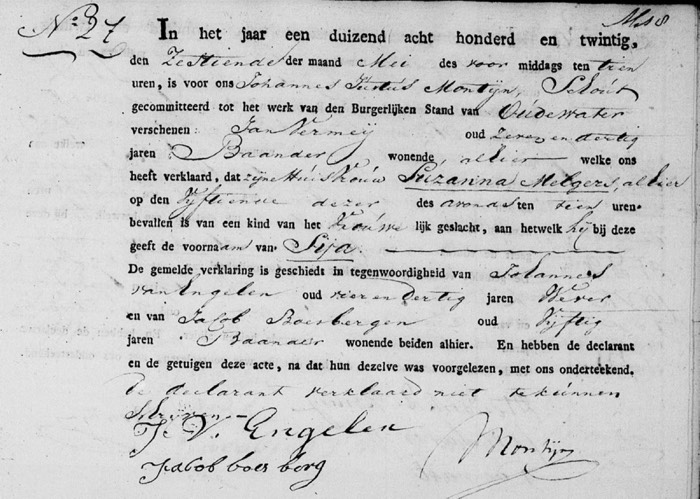 No. 27
In het jaar een duizend acht honderd en twintig,
den Zestiende der maand Mei des voor middags ten tien
uren, is voor ons Johannes Justus Montijn, Schout
gecommitteerd tot het werk van den Burgerlijken Stand van Oudewater
verschenen: Jan Vermeij oud zeven en dertig
jaren Baander wonende, alhier welke ons
heeft verklaard, dat zijne Huisvrouw Suzanna Melgers, alhier
op den Vijftiende dezer des avonds ten tien uren
bevallen is van een kind van het Vrouwe lijk geslacht, aan hetwelk hij bij deze
geeft de voornaam van Sija.
De gemelde verklaring is geschiedt in tegenwoordigheid van Johannes
van Engelen oud vier en dertig jaren Wever
en van Jacob Boesbergen oud Vijftig
jaren Baander wonende beiden alhier. En hebben de declarant
en de getuigen deze acte, na dat hun dezelve was voorgelezen, met ons onderteekend.
de declarant verklaard niet te kunnen
schrijven
V. Engelen
Jacob boes berg
Montijn